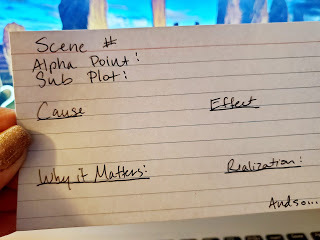 Scene #
Alpha Point:
Sub Plot:
Cause Effect
Why it Matters: Realization:
And so...